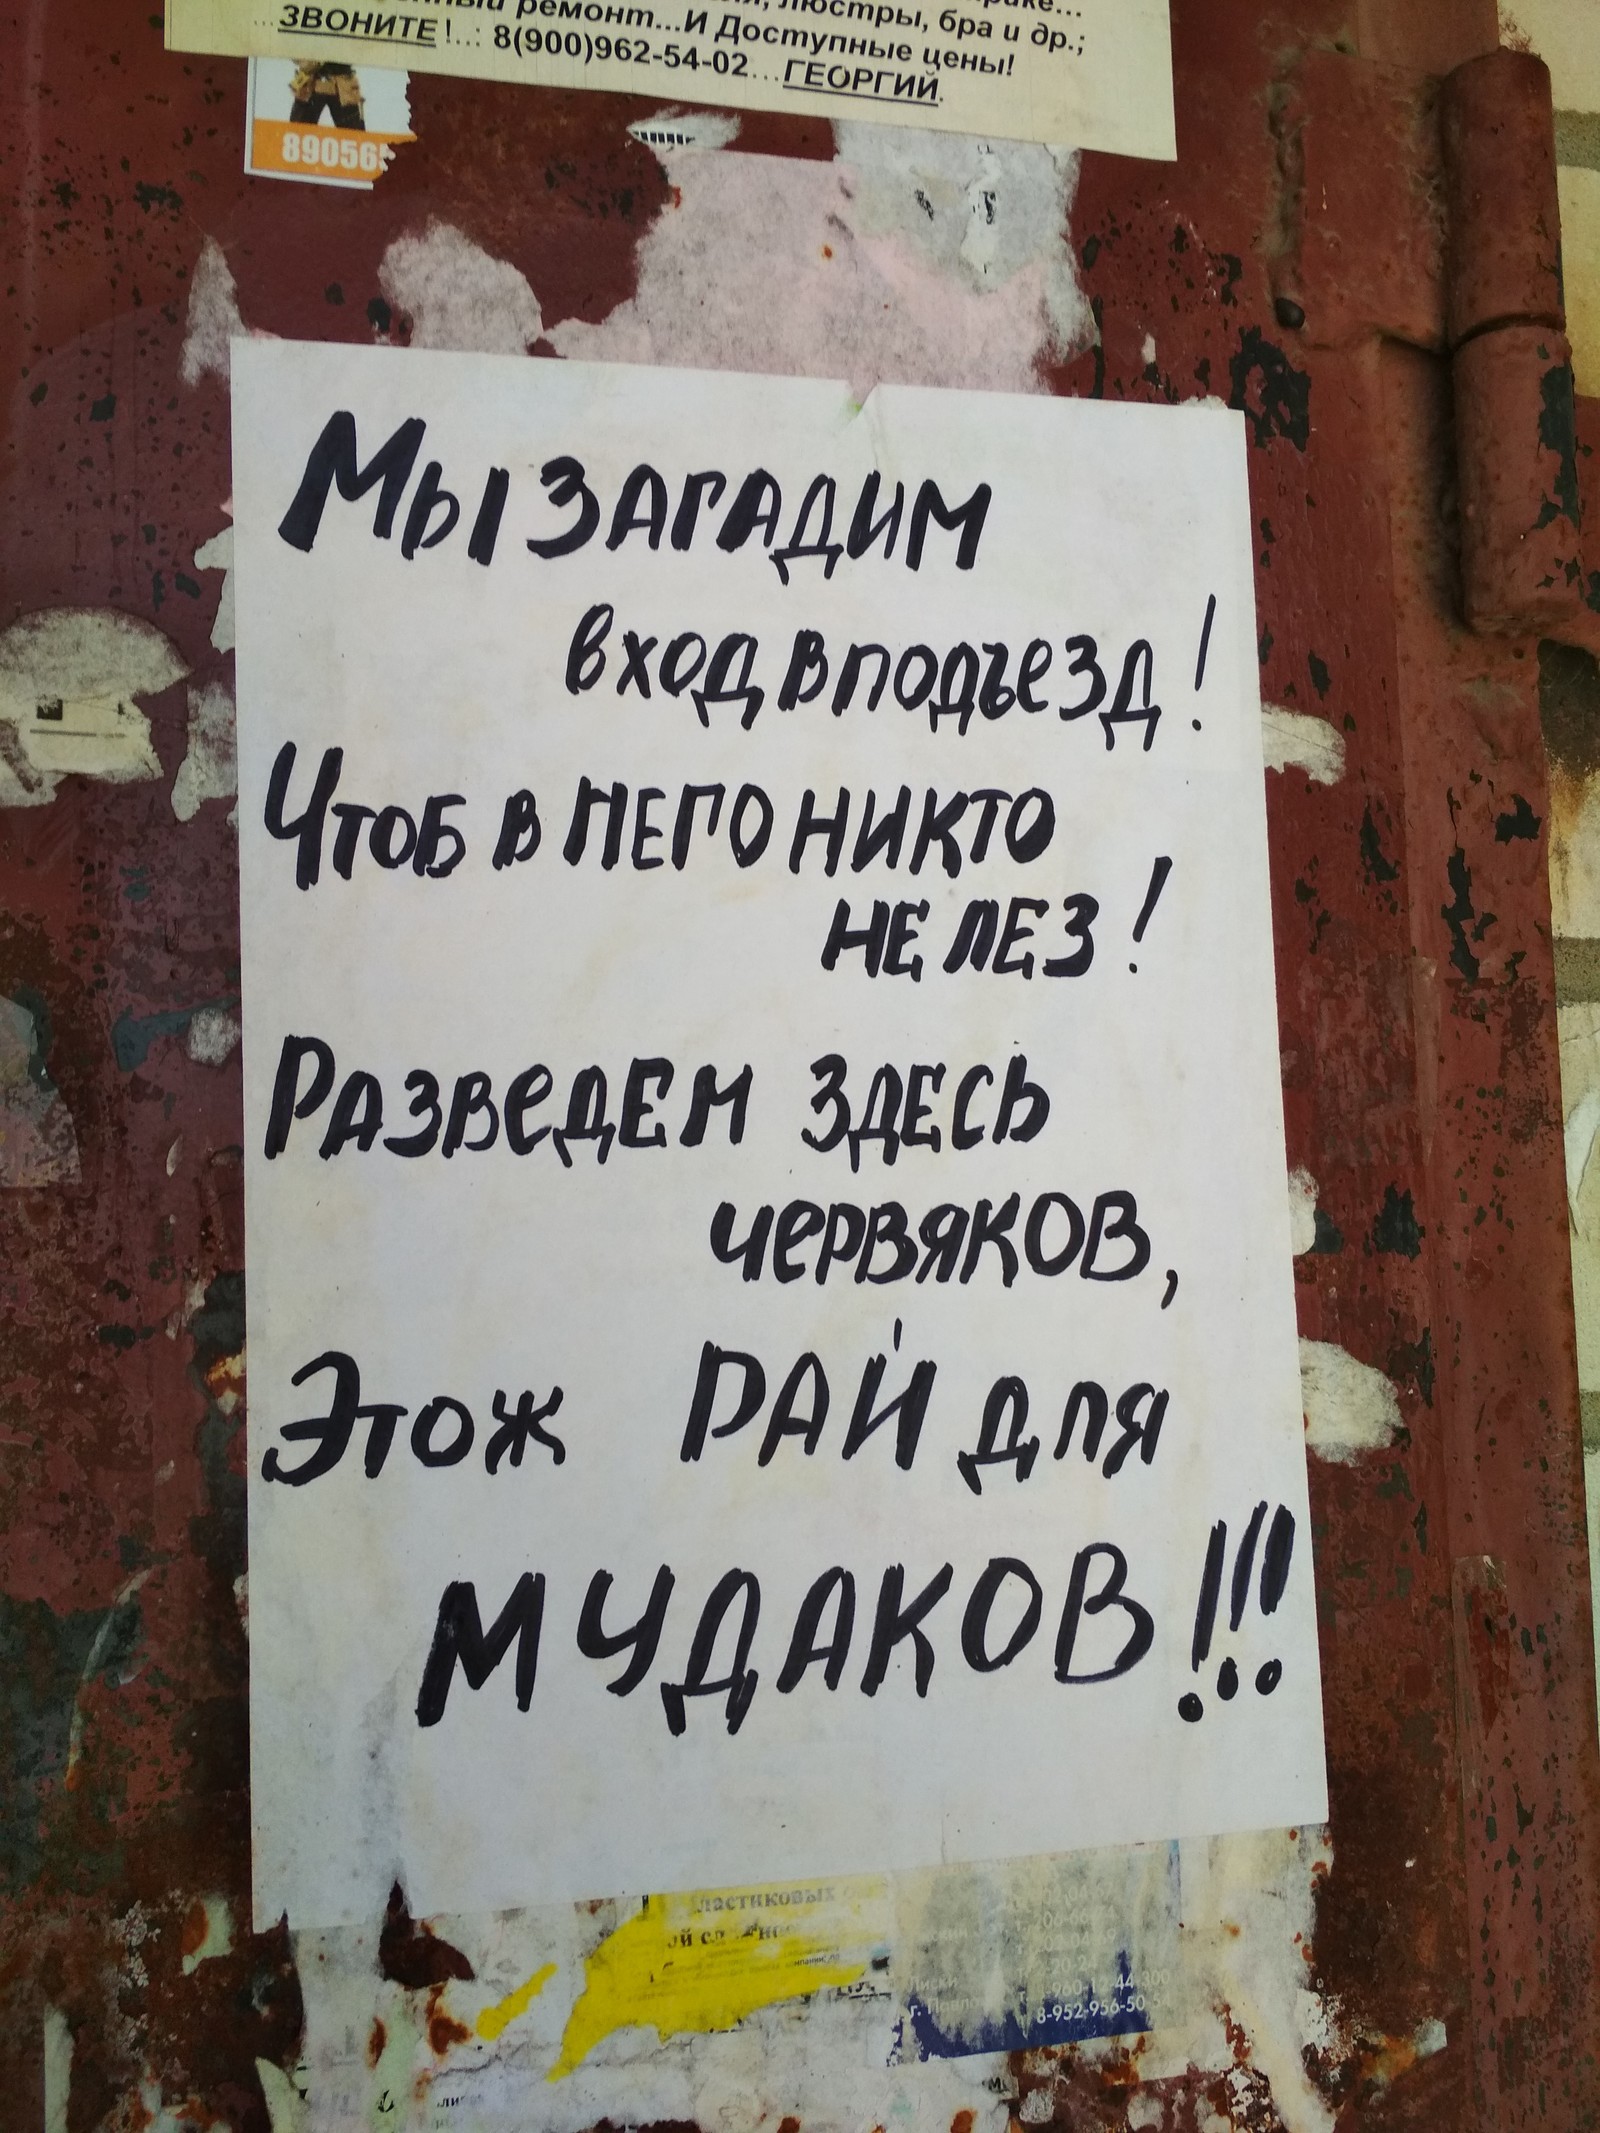 люстры, бра и др.;
ремонт...И Доступные цены!
...ЗВОНИТЕ!..: 8(900)962-54-02...ГЕОРГИЙ.
890565
Мы загадим
вход в подъезд!
Чтоб в него никто
не лез!
Разведем здесь
червяков,
Этож рай для
МУДАКОВ!!!
ластиковых
8-960-12-44-300
8-952-956-50-54